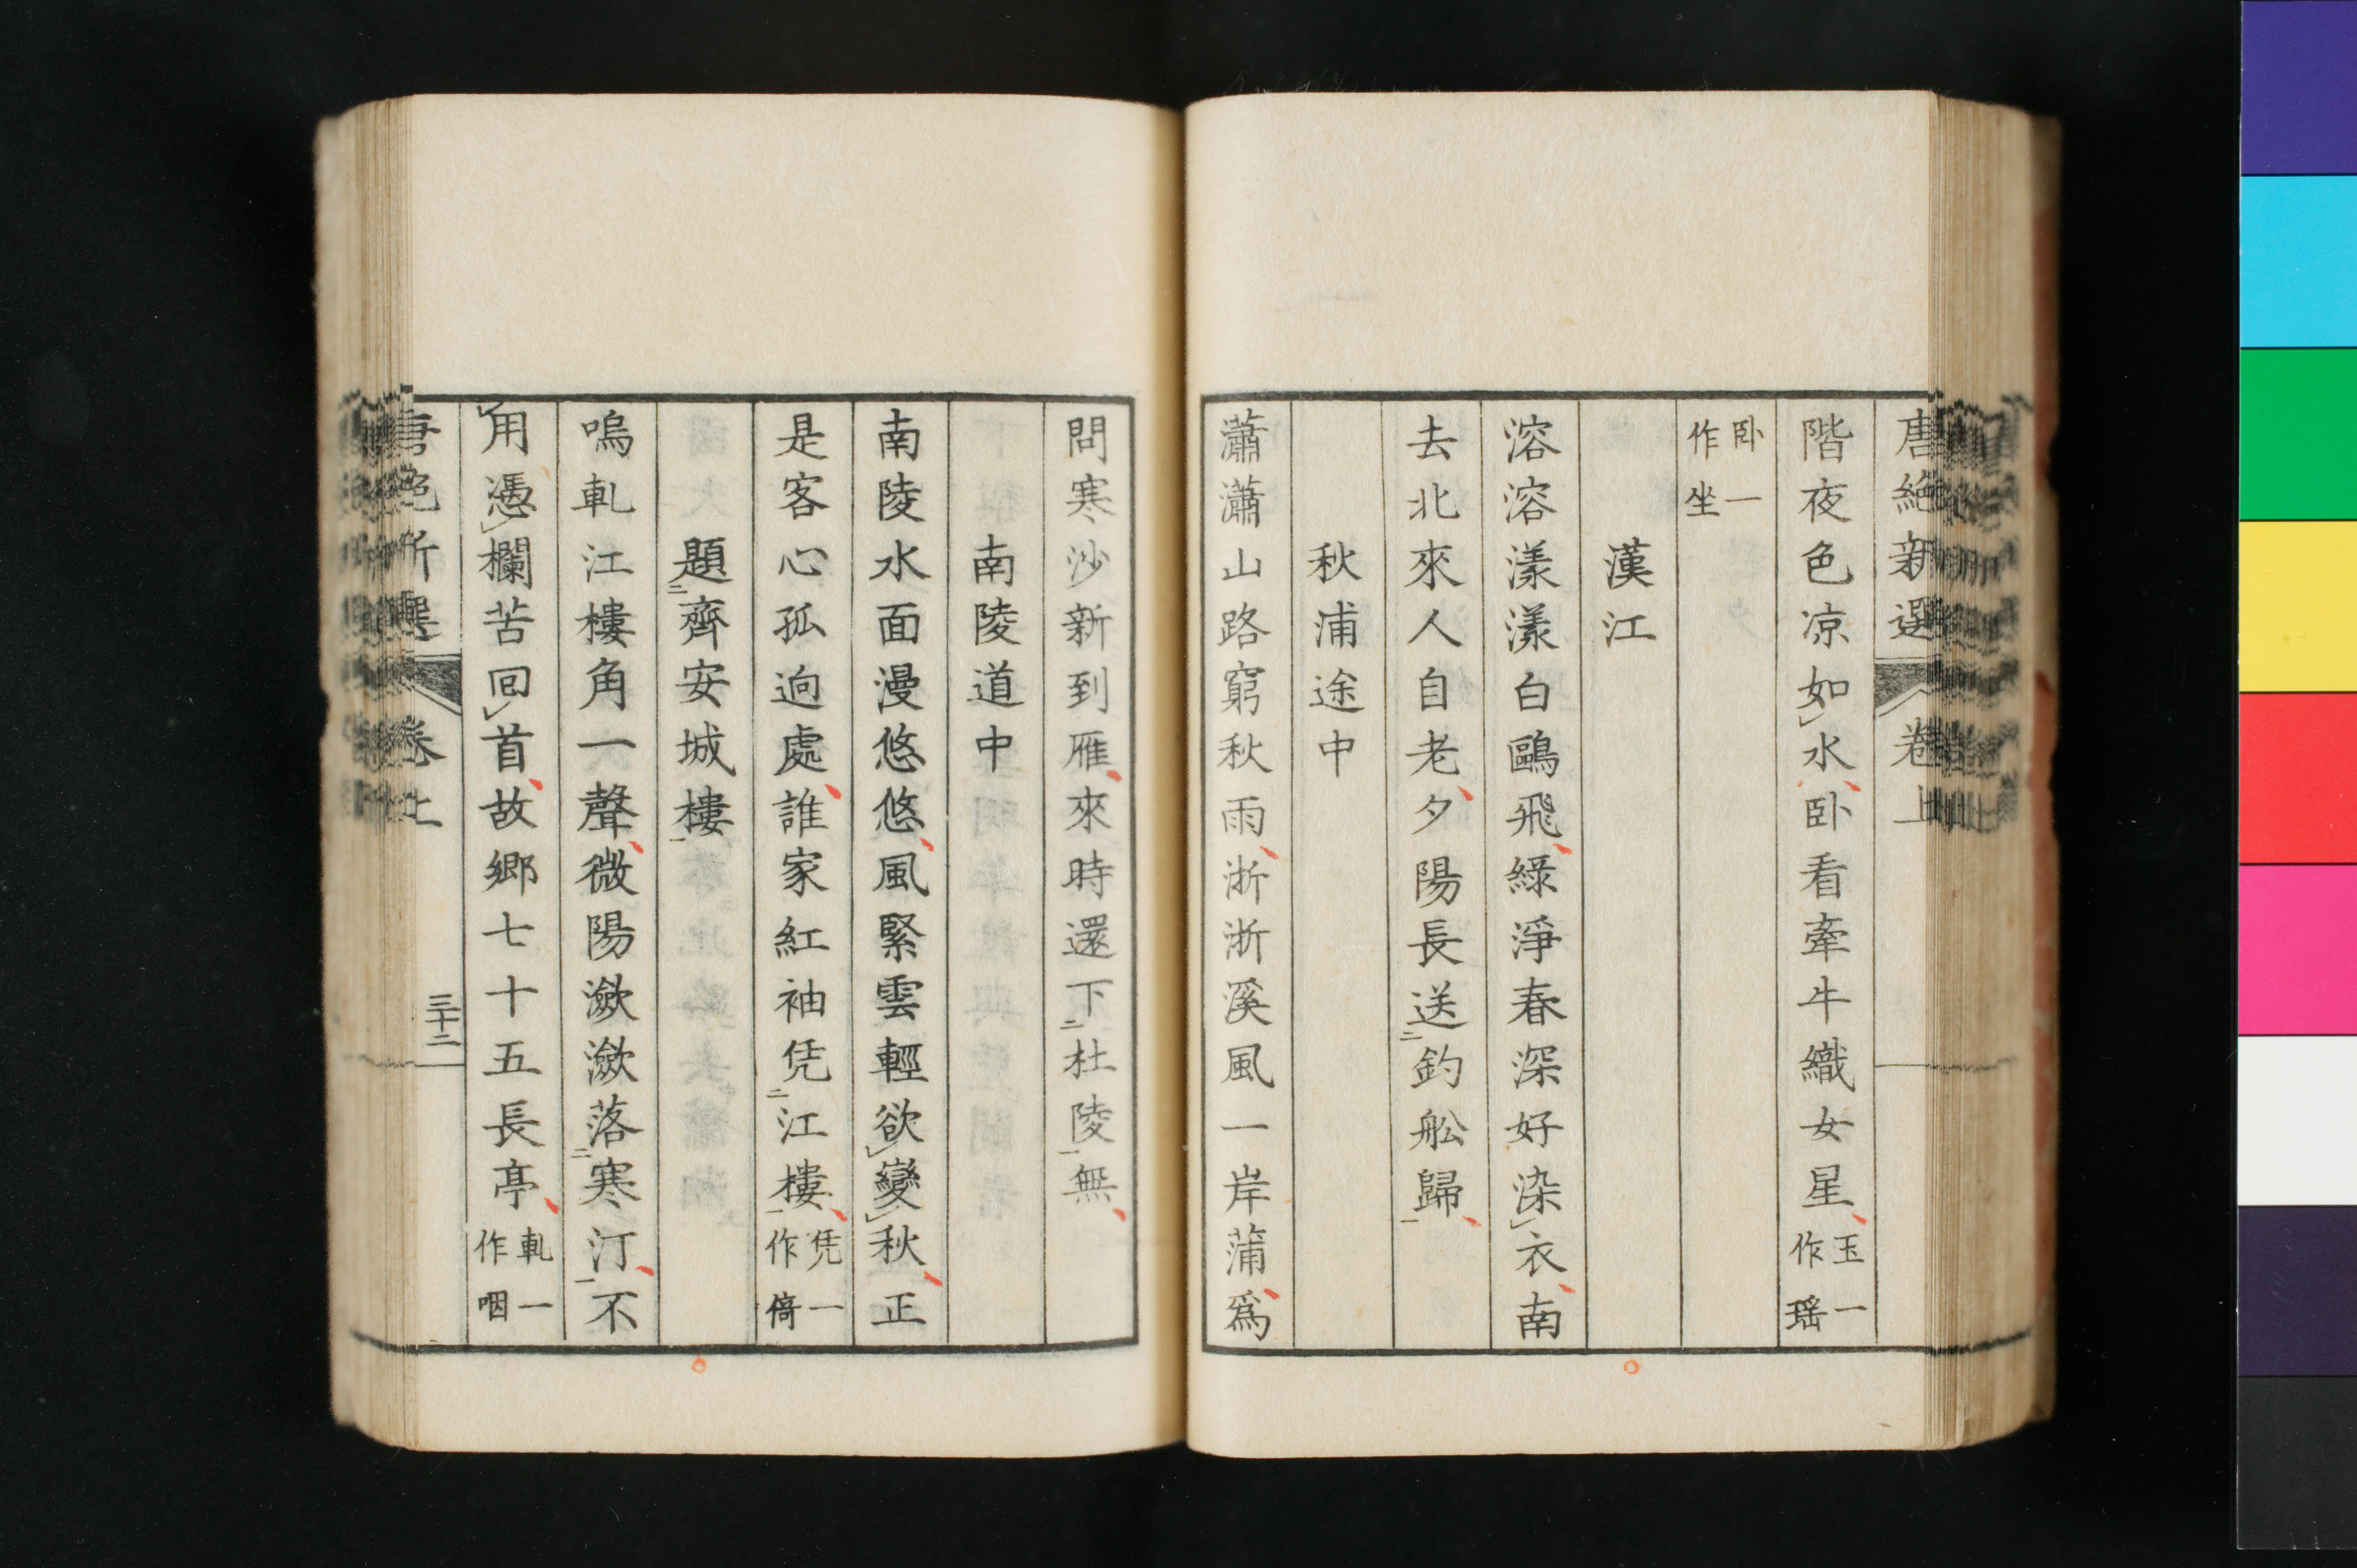 唐絶新選 卷上
階夜色凉如水卧看牽牛織女星玉一作瑶
卧一作坐
漢江
溶溶漾漾白鷗飛綠淨春深好染衣南
去北來人自老夕陽長送二釣舩歸一
秋浦途中
蕭瀟山路窮秋雨浙浙溪風一岸蒲爲
問寒沙新到雁來時還下二杜陵一無
南陵道中
南陵水面漫悠悠風緊雲輕欲變秋正
是客心孤逈處誰家紅袖凭二江樓一凭一作倚
題二齊安城樓一
嗚軋江樓角一聲微陽瀲瀲落二寒汀一不
用憑欄苦回首故鄉七十五長亭軋一作咽
唐絶新選 卷上 三十二